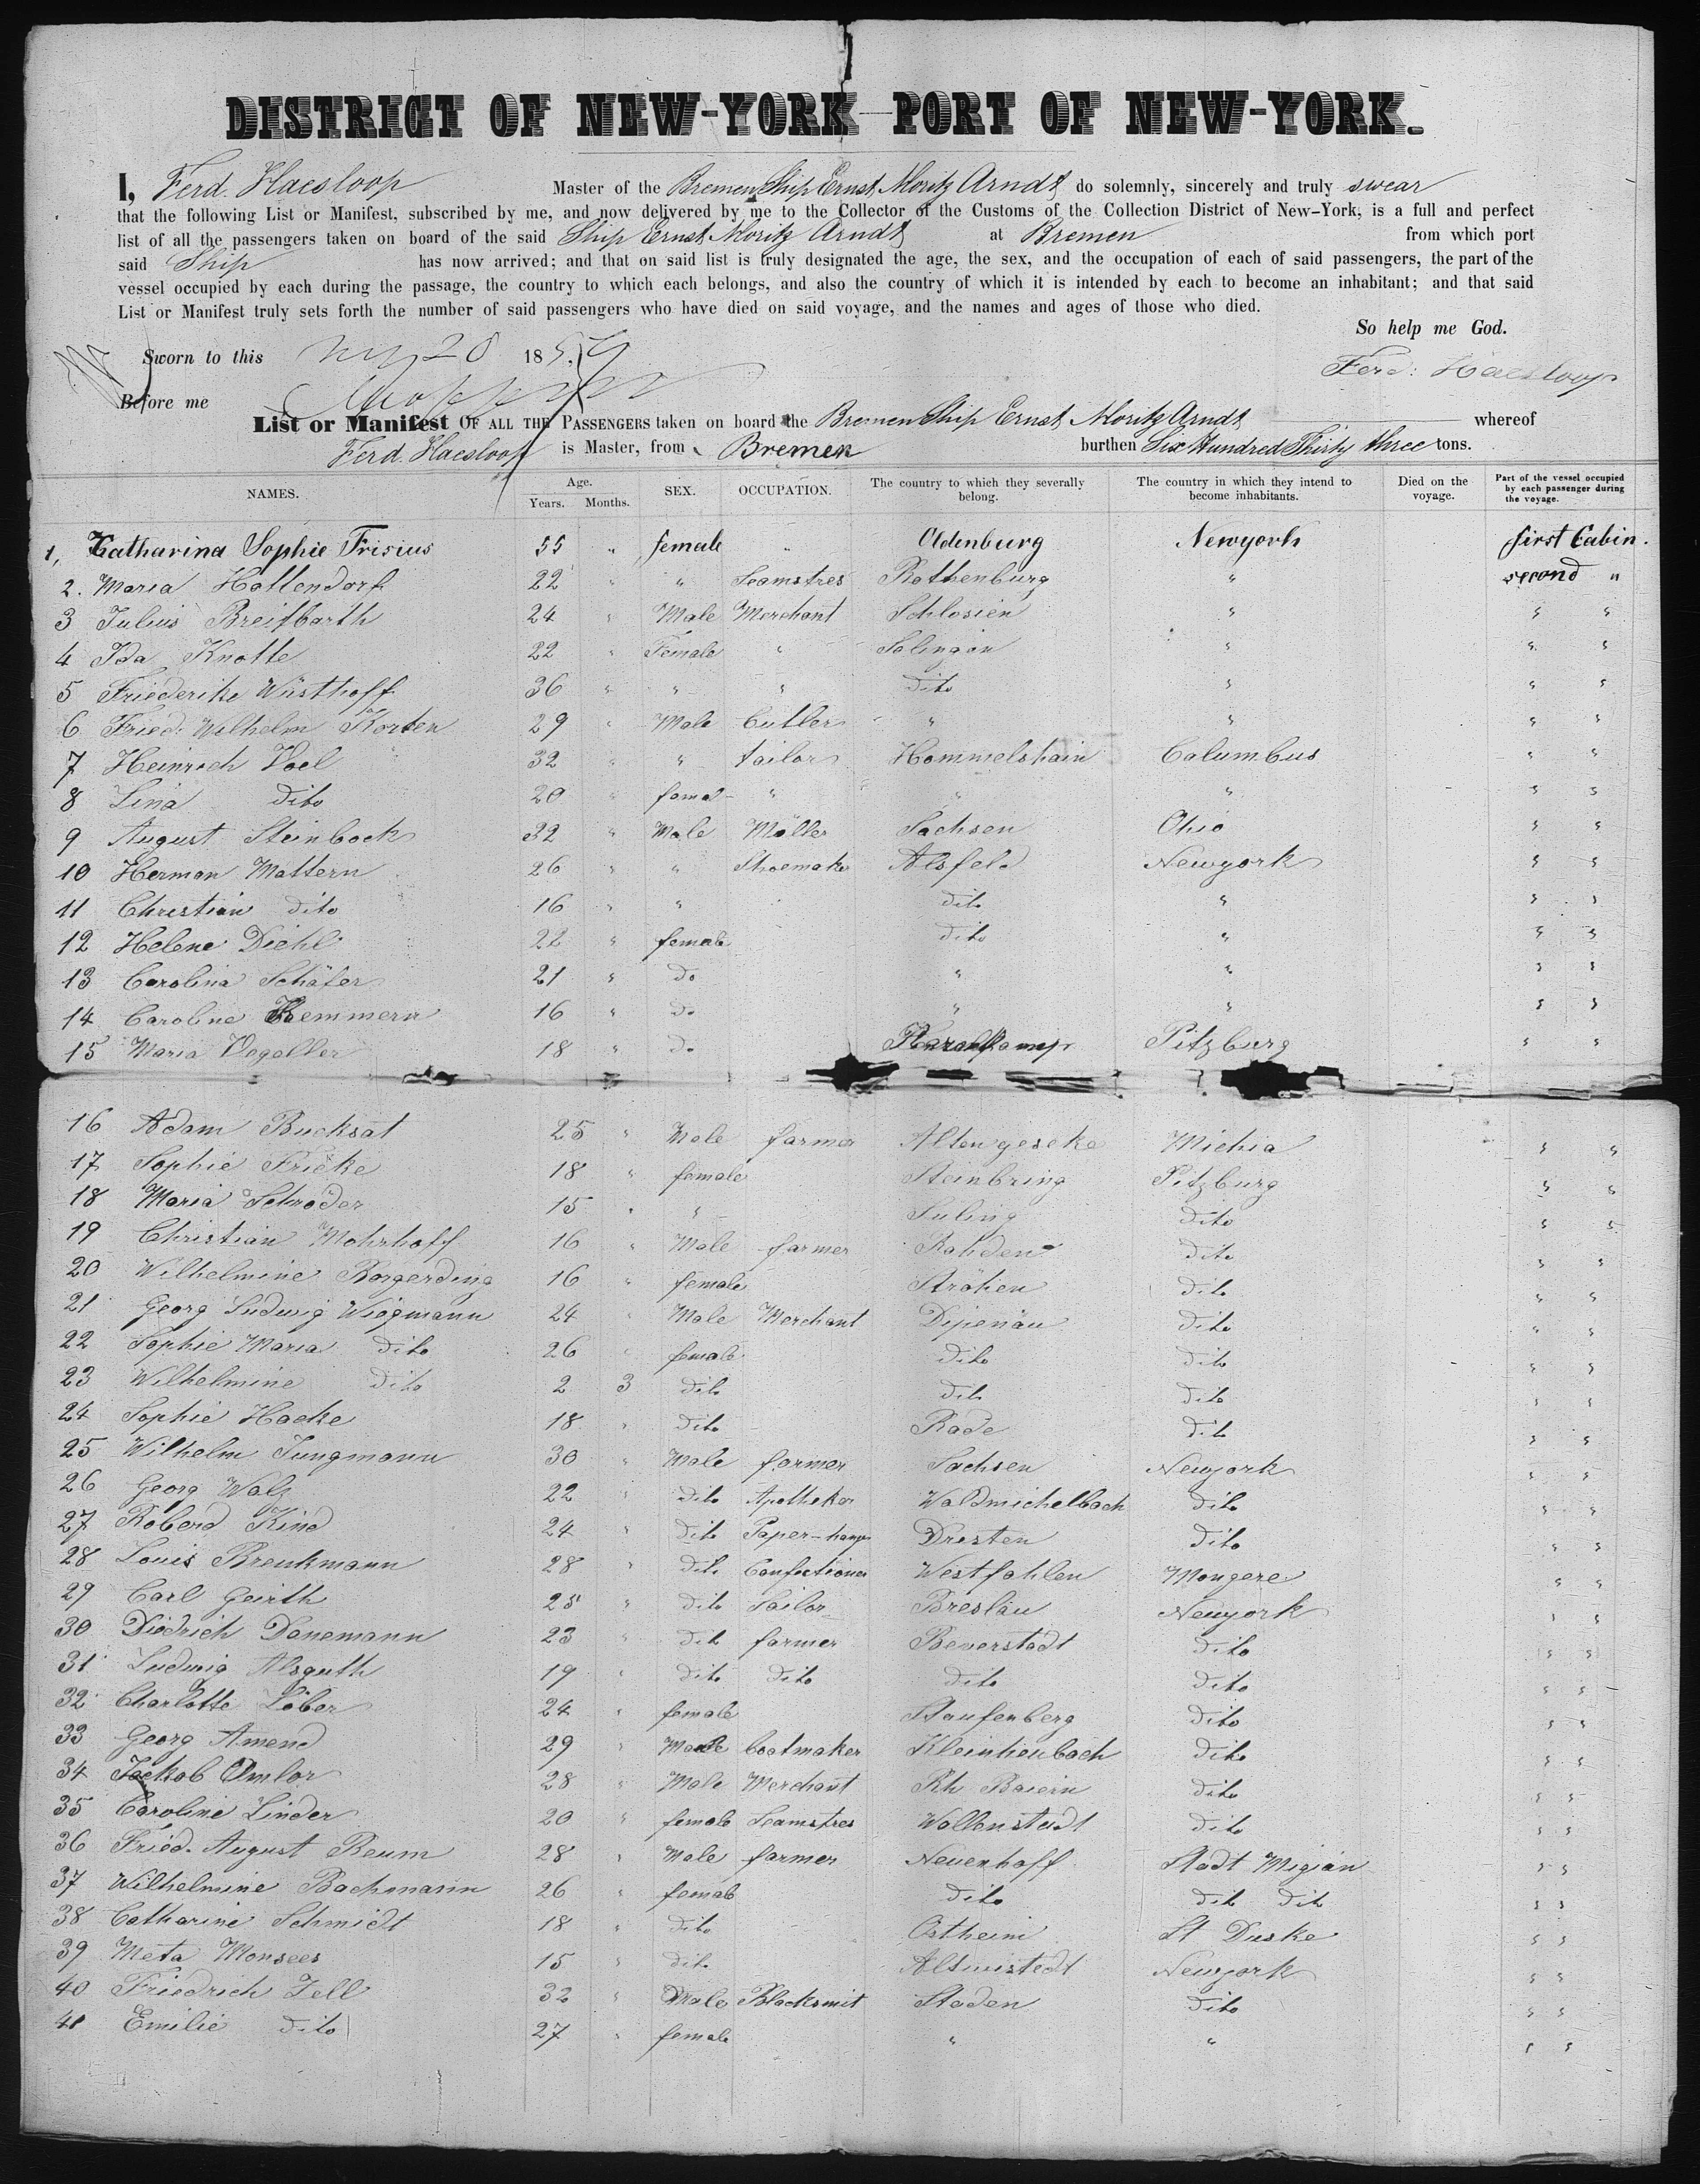 DISTRICT OF NEW-YORK PORT OF NEW-YORK.
I, Ferd. Haesloop Master of the Bremen Ship Ernst Moritz Arndt do solemnly, sincerely and truly swear
that the following List or Manifest, subscribed by me, and now delivered by me to the Collector of the Customs of the Collection District of New-York, is a full and perfect
list of all the passengers taken on board of the said Ship Ernst Moritz Arndt at Bremen from which port
said Ship has now arrived; and that on said list is truly designated the age, the sex, and the occupation of each of said passengers, the part of the
vessel occupied by each during the passage, the country to which each belongs, and also the country of which it is intended by each to become an inhabitant; and that said
List or Manifest truly sets forth the number of said passengers who have died on said voyage, and the names and ages of those who died.
So help me God.
Sworn to this 20 1859
Ferd: Haesloop
Before me
List or Manifest OF ALL THE PASSENGERS taken on board the Bremen Ship Ernst Moritz Arndt whereof
Ferd. Haesloop is Master, from Bremen burthen Six Hundred Thirty three tons.
NAMES. Age. Years. Months. SEX. OCCUPATION. The country to which they severally belong. The country in which they intend to become inhabitants. Died on the voyage. Part of the vessel occupied by each passenger during the voyage.
1, Catharina Sophie Frisius 55 " female " Oldenburg Newyork first Cabin.
2. Maria Hattendorf 22 " " Seamstres Rothenburg " second "
3 Julius Breitbarth 24 " Male Merchant Schlosien " " "
4 Ida Knotte 22 " Female " Solingen " " "
5 Friederike Wüsthoff 36 " " " dito " " "
6 Fried. Wilhelm Korten 29 " Male Cutler " " " "
7 Heinrich Voel 32 " " tailor Hommelshain Calumbus " "
8 Lina dito 20 " femal " " " " "
9 August Steinbock 32 " Male Möller Sachsen Ohio " "
10 Herman Mattern 26 " " Shoemake Alsfeld Newyork " "
11 Christian dito 16 " " dito " " "
12 Helene Diehl 22 " female dito " " "
13 Carolina Schäfer 21 " do " " " "
14 Caroline Hemmern 16 " do " " " "
15 Maria Vogeller 18 " do Pitzburg " "
16 Adam Bucksat 25 " Male farmer Altengeseke Michia " "
17 Sophie Fricke 18 " female Steinbring Pitzburg " "
18 Maria Schroder 15 " " Suling dito " "
19 Christian Mohrhoff 16 " Male farmer Rahden dito " "
20 Wilhelmine Borgerding 16 " female Ströhen dito " "
21 Georg Ludwig Wiegmann 24 " Male Merchant Dipenau dito " "
22 Sophie Maria dito 26 " female dito dito " "
23 Wilhelmine dito 2 3 dito dito dito " "
24 Sophie Hacke 18 " dito Rade dito " "
25 Wilhelm Jungmann 30 " Male farmer Sachsen Newyork " "
26 Georg Walz 22 " dito Apotheker Waldmichelbach dito " "
27 Roberd Kind 24 " dito Paper-hange Dresten dito " "
28 Louis Breukmann 28 " dito Confectioner Westfahlen Mongere " "
29 Carl Geirth 25 " dito Tailor Breslau Newyork " "
30 Diedrich Danemann 23 " dito farmer Beverstadt dito " "
31 Ludwig Alsguth 19 " dito dito dito dito " "
32 Charlotte Löber 24 " female Staufenberg dito " "
33 Georg Amend 29 " Male bootmaker Kleinheubach dito " "
34 Jackob Omlor 28 " Male Merchant Rh Baiern dito " "
35 Caroline Linder 20 " female Seamstres Wallenstadt dito " "
36 Fried. August Reum 28 " Male farmer Neuenhoff Stadt Migian " "
37 Wilhelmine Bachmann 26 " female dito dito dito " "
38 Catharine Schmidt 18 " dito Ostheim St Duske " "
39 Meta Monsees 15 " dito Altwistedt Newyork " "
40 Friedrich Zell 32 " Male Blacksmit Staden dito " "
41 Emilie dito 27 " female " " " "